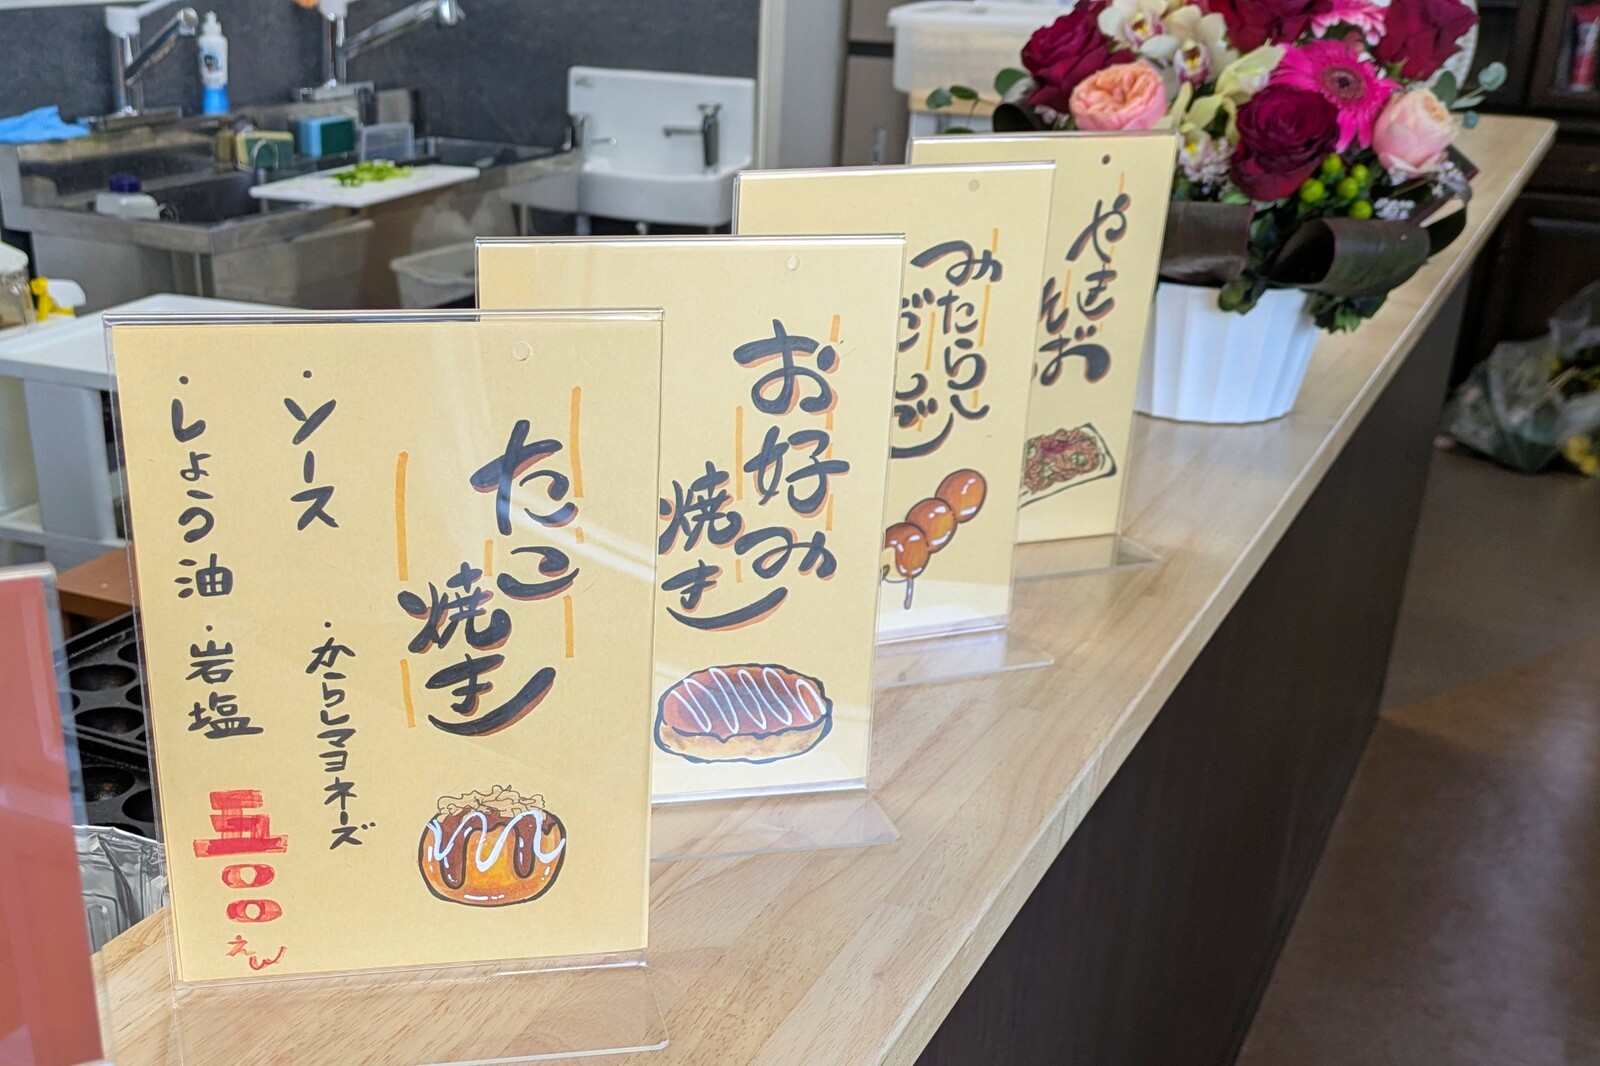 たこ
焼き
・ソース
・からしマヨネーズ
・しょう油
・岩塩
五〇〇えん
お好み
焼き
みたらし
だんご
・やき
そば